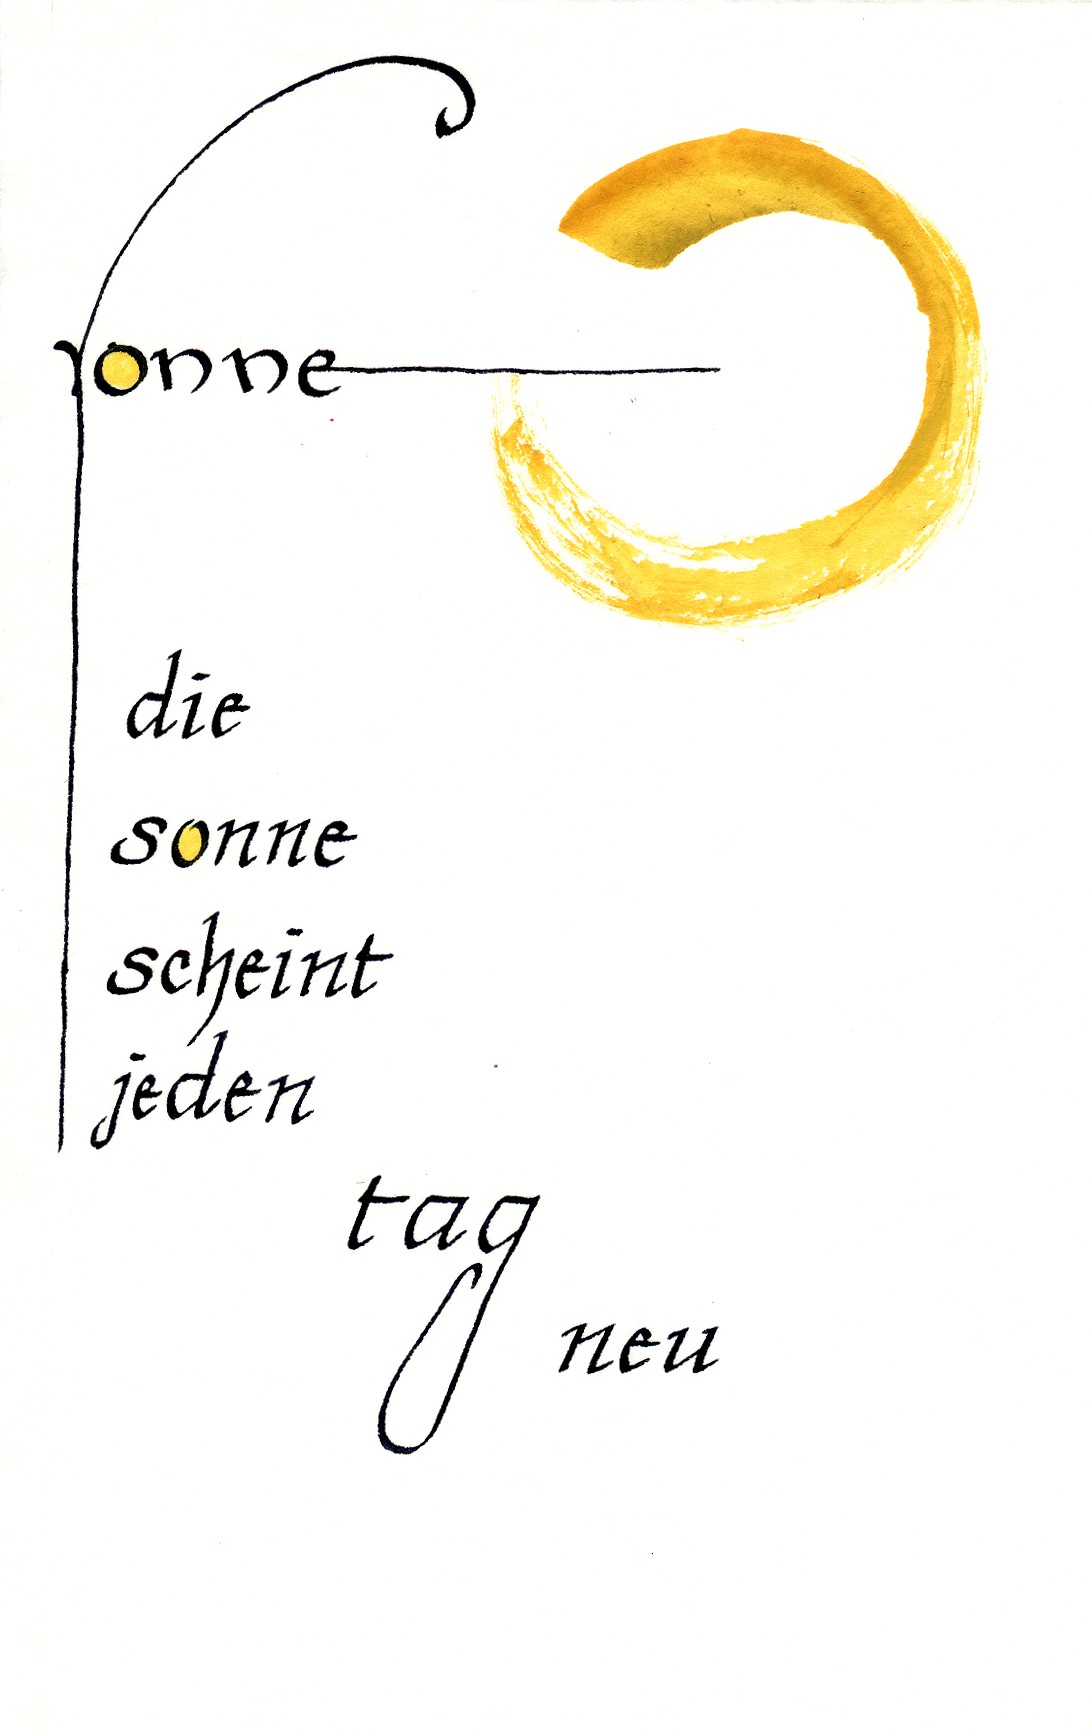 sonne
die
sonne
scheint
jeden
tag
neu